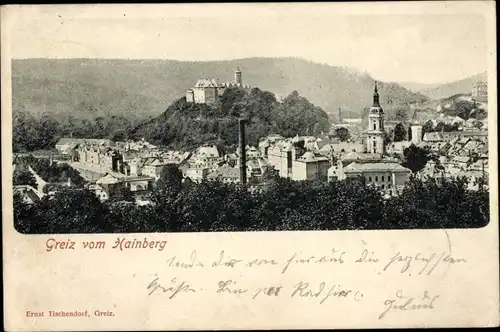 Greiz vom Hainberg
Sende dir von hier aus die herzlichsten
Grüße. Bin per Rad hier.
Ernst Tischendorf, Greiz.